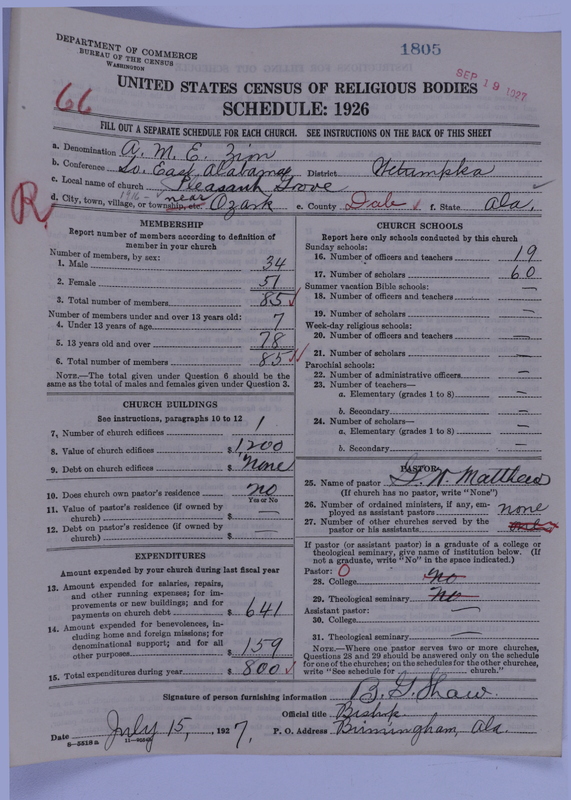 DEPARTMENT OF COMMERCE
BUREAU OF THE CENSUS
WASHINGTON
1805
SEP 19 1927
66
UNITED STATES CENSUS OF RELIGIOUS BODIES
SCHEDULE: 1926
FILL OUT A SEPARATE SCHEDULE FOR EACH CHURCH. SEE INSTRUCTIONS ON THE BACK OF THIS SHEET
a. Denomination A. M. E. Zion
b. Conference So. East Alabama District Wetumpka
c. Local name of church Pleasant Grove
1916 - near
d. City, town, village, or township, etc. Ozark e. County Dale f. State Ala.
R
MEMBERSHIP
Report number of members according to definition of
member in your church
Number of members, by sex:
1. Male 34
2. Female 51
3. Total number of members 85
Number of members under and over 13 years old:
4. Under 13 years of age 7
5. 13 years old and over 78
6. Total number of members 85
NOTE.—The total given under Question 6 should be the
same as the total of males and females given under Question 3.
CHURCH BUILDINGS
See instructions, paragraphs 10 to 12
7. Number of church edifices 1
8. Value of church edifices $ 1200
9. Debt on church edifices $ None
10. Does church own pastor's residence no
Yes or No
11. Value of pastor's residence (if owned by
church) $ —
12. Debt on pastor's residence (if owned by
church) $ —
EXPENDITURES
Amount expended by your church during last fiscal year
13. Amount expended for salaries, repairs,
and other running expenses; for im-
provements or new buildings; and for
payments on church debt $ 641
14. Amount expended for benevolences, in-
cluding home and foreign missions; for
denominational support; and for all
other purposes $ 159
15. Total expenditures during year $ 800
CHURCH SCHOOLS
Report here only schools conducted by this church
Sunday schools:
16. Number of officers and teachers 19
17. Number of scholars 60
Summer vacation Bible schools: —
18. Number of officers and teachers
19. Number of scholars —
Week-day religious schools:
20. Number of officers and teachers —
21. Number of scholars —
Parochial schools:
22. Number of administrative officers —
23. Number of teachers—
a. Elementary (grades 1 to 8) —
b. Secondary —
24. Number of scholars—
a. Elementary (grades 1 to 8) —
b. Secondary —
PASTOR
25. Name of pastor Matthews
(If church has no pastor, write "None")
26. Number of ordained ministers, if any, em-
ployed as assistant pastors none
27. Number of other churches served by the
pastor or his assistants
If pastor (or assistant pastor) is a graduate of a college or
theological seminary, give name of institution below. (If
not a graduate, write "No" in the space indicated.)
Pastor: 0
28. College No
29. Theological seminary No
Assistant pastor:
30. College —
31. Theological seminary —
NOTE.—Where one pastor serves two or more churches,
Questions 28 and 29 should be answered only on the schedule
for one of the churches; on the schedules for the other churches,
write "See schedule for church."
Signature of person furnishing information B. G. Shaw.
Official title Bishop
Date July 15, , 1927. P. O. Address Birmingham, Ala.
8—5518a